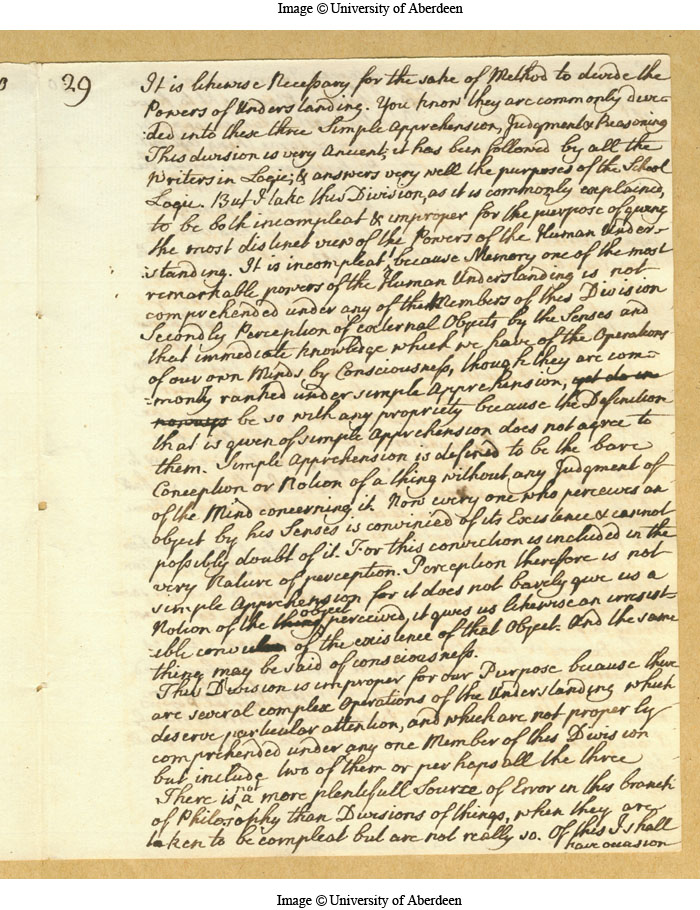 Image © University of Aberdeen
29
It is likewise Necessary for the sake of Method to divide the
Powers of Understanding. You know they are commonly divi-
ded into these three Simple Apprehension, Judgment & Reasoning
This division is very Ancient, it has been followed by all the
Writers in Logic; & answers very well the purposes of the School
Logic. But I take this Division, as it is commonly explained,
to be both incompleat & improper for the purpose of giving
the most distinct view of the Powers of the Human Under-
standing. It is incompleat because Memory one of the most
remarkable powers of the Human Understanding is not
comprehended under any of the Members of this Division
Secondly Perception of external Objects by the Senses and
that immediate knowledge which we have of the Operations
of our own Minds by Consciousness, though they are com-
-monly ranked under simple Apprehension, yet do in
noways be so with any propriety because the Definition
that is given of simple Apprehension does not agree to
them. Simple Apprehension is defined to be the bare
Conception or Notion of a thing without any Judgment of
of the Mind concerning it. Now every one who perceives an
object by his Senses is convinced of its Existence & cannot
possibly doubt of it. For this conviction is included in the
very Nature of perception. Perception therefore is not
simple Apprehension for it does not barely give us a
Notion of the thing object perceived, it gives us likewise an irresist-
ible of the existence of that Object. And the same
thing may be said of consciousness.
This Division is improper for our Purpose because there
are several complex Operations of the Understanding which
deserve particular attention, and which are not properly
comprehended under any one Member of this Division
but include two of them or perhaps all the three
There is not a more plentifull Source of Error in this branch
of Philosophy than Divisions of things, when they are
taken to be compleat but are not really so. Of this I shall
have occasion
Image © University of Aberdeen